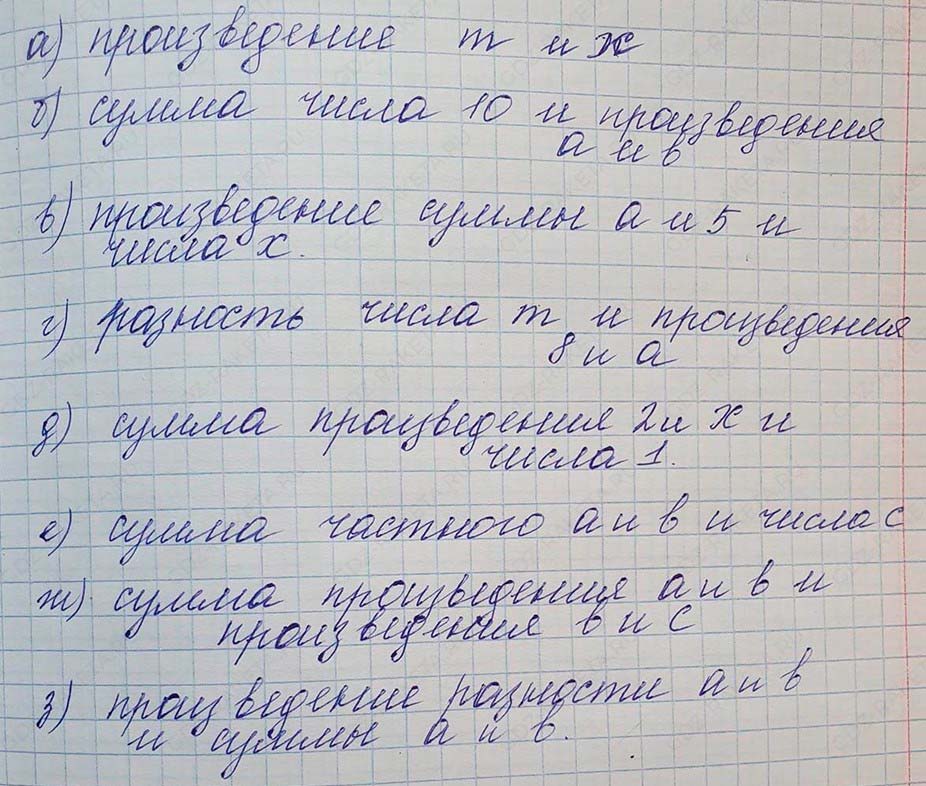 а) произведение m и x
б) сумма числа 10 и произведения
а и в
в) произведение суммы а и 5 и
числа х.
г) разность числа m и произведения
8 и а
д) сумма произведения 2 и х и
числа 1.
е) сумма частного а и в и числа с
ж) сумма произведения а и в и
произведения в и с
з) произведение разности а и в
и суммы а и в.